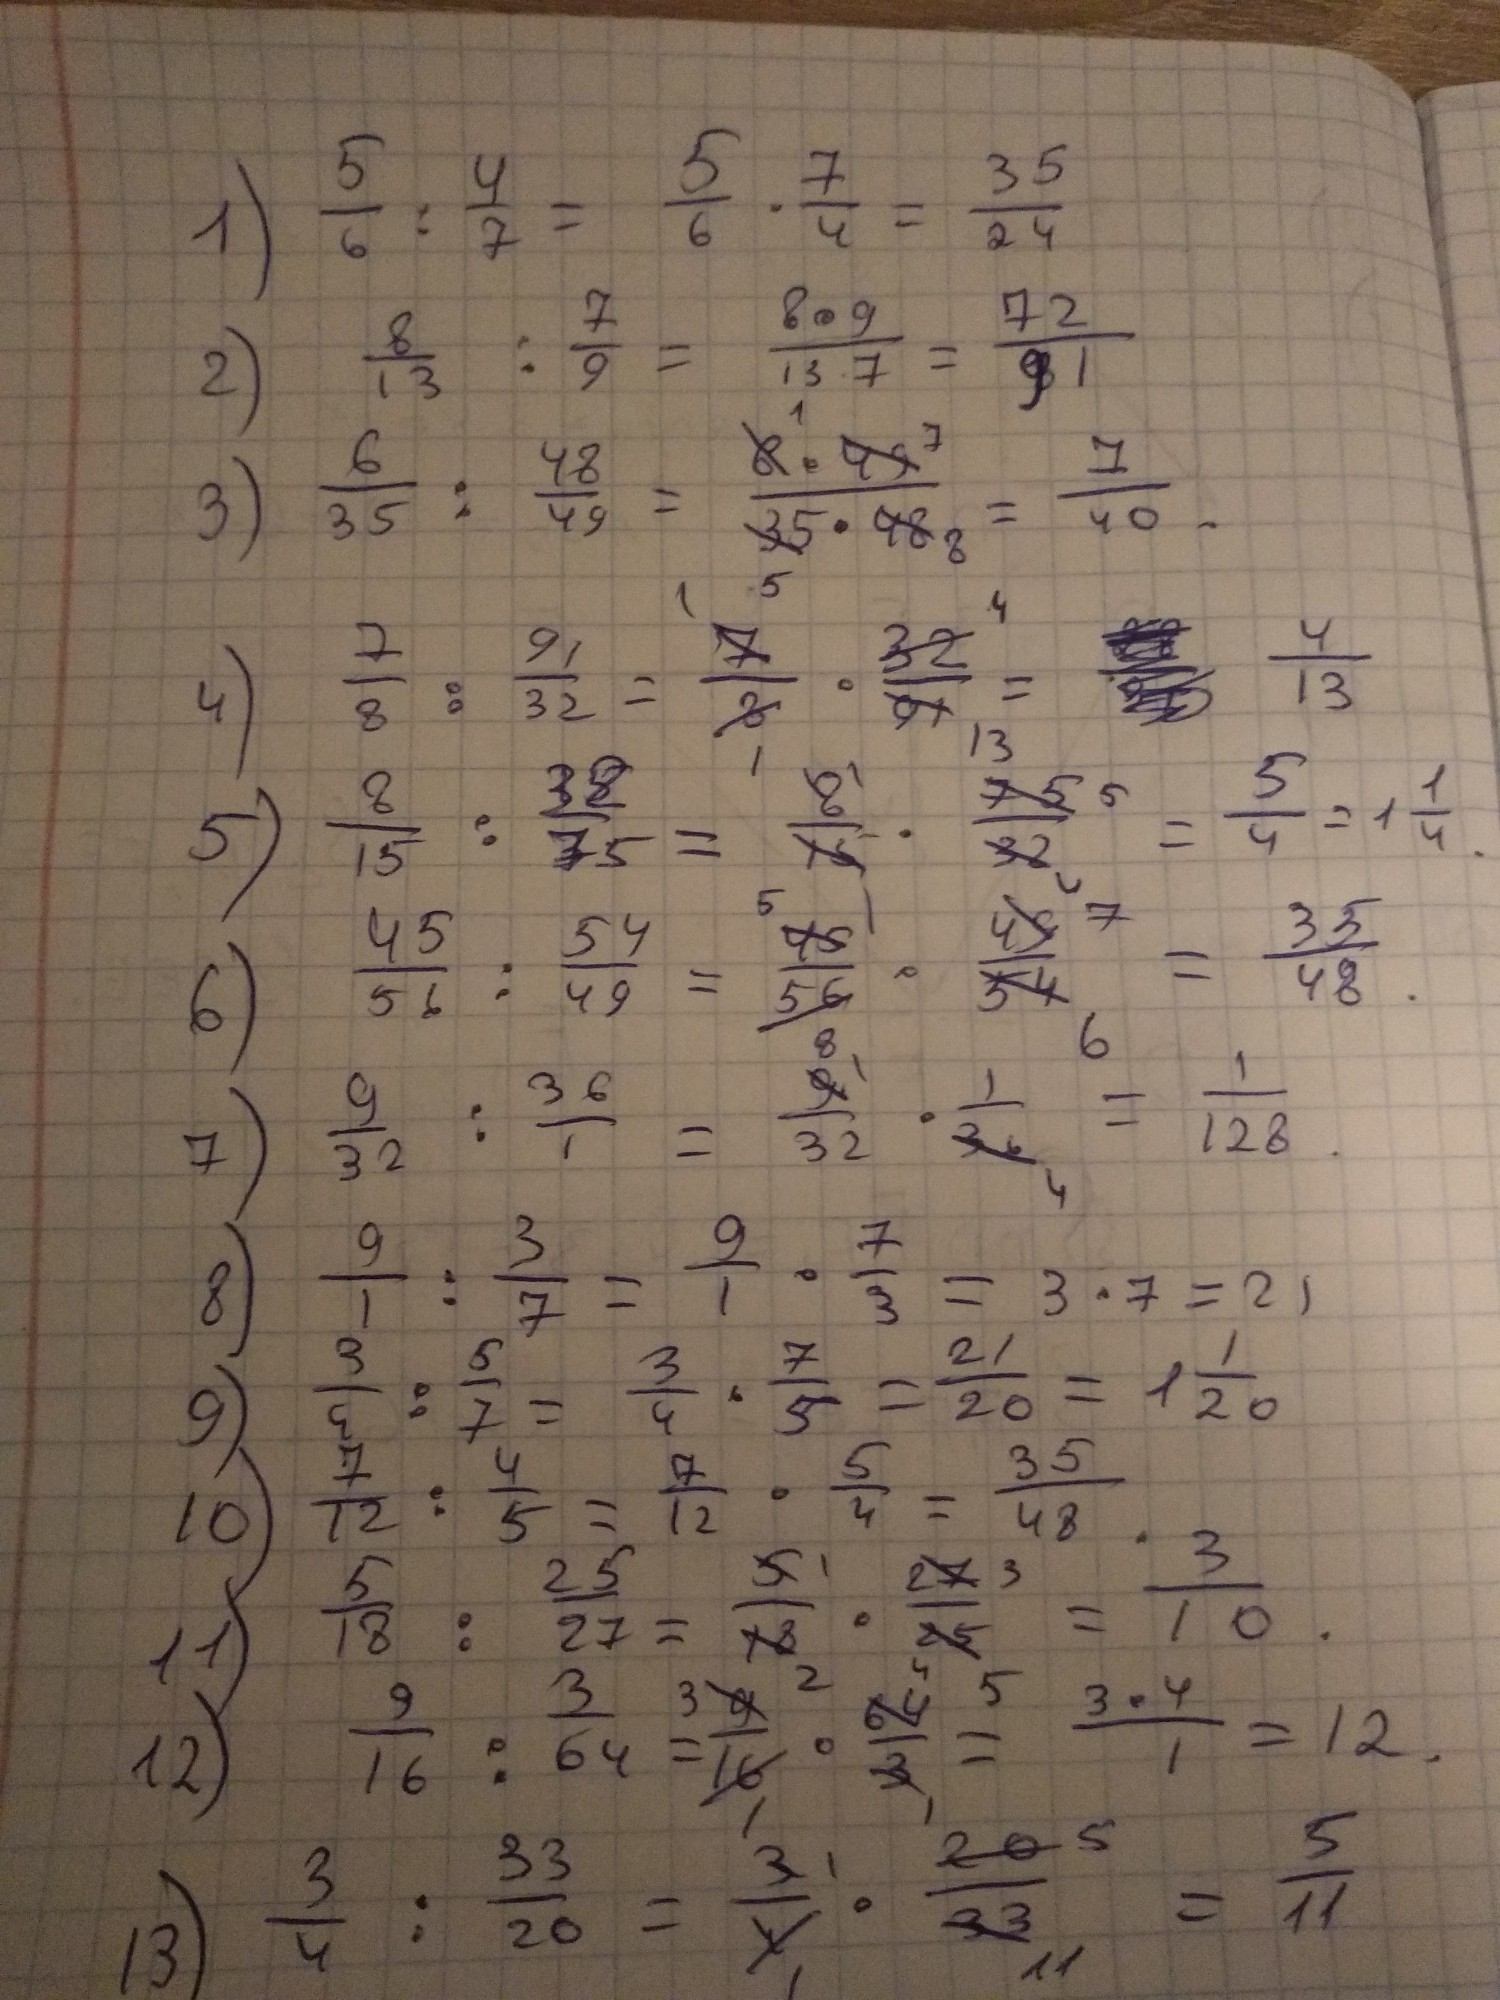 1) 5/6 : 4/7 = 5/6 · 7/4 = 35/24
2) 8/13 : 7/9 = 8·9/13·7 = 72/91
3) 6/35 : 48/49 = 6 1 · 49 7/35 5 · 48 8 = 7/40.
4) 7/8 : 91/32 = 1 7/8 1 · 32 4/91 13 = 4/13
5) 8/15 : 32/75 = 8 1/15 1 · 75 5/32 4 = 5/4 = 1 1/4.
6) 45/56 : 54/49 = 5 45/56 8 · 49 7/54 6 = 35/48.
7) 9/32 : 36/1 = 9 1/32 · 1/36 4 = 1/128.
8) 9/1 : 3/7 = 9/1 · 7/3 = 3·7 = 21
9) 3/4 : 5/7 = 3/4 · 7/5 = 21/20 = 1 1/20
10) 7/12 : 4/5 = 7/12 · 5/4 = 35/48.
11) 5/18 : 25/27 = 5 1/18 2 · 27 3/25 5 = 3/10.
12) 9/16 : 3/64 = 3 9/16 1 · 64 4/3 1 = 3·4/1 = 12.
13) 3/4 : 33/20 = 3 1/4 1 · 20 5/33 11 = 5/11